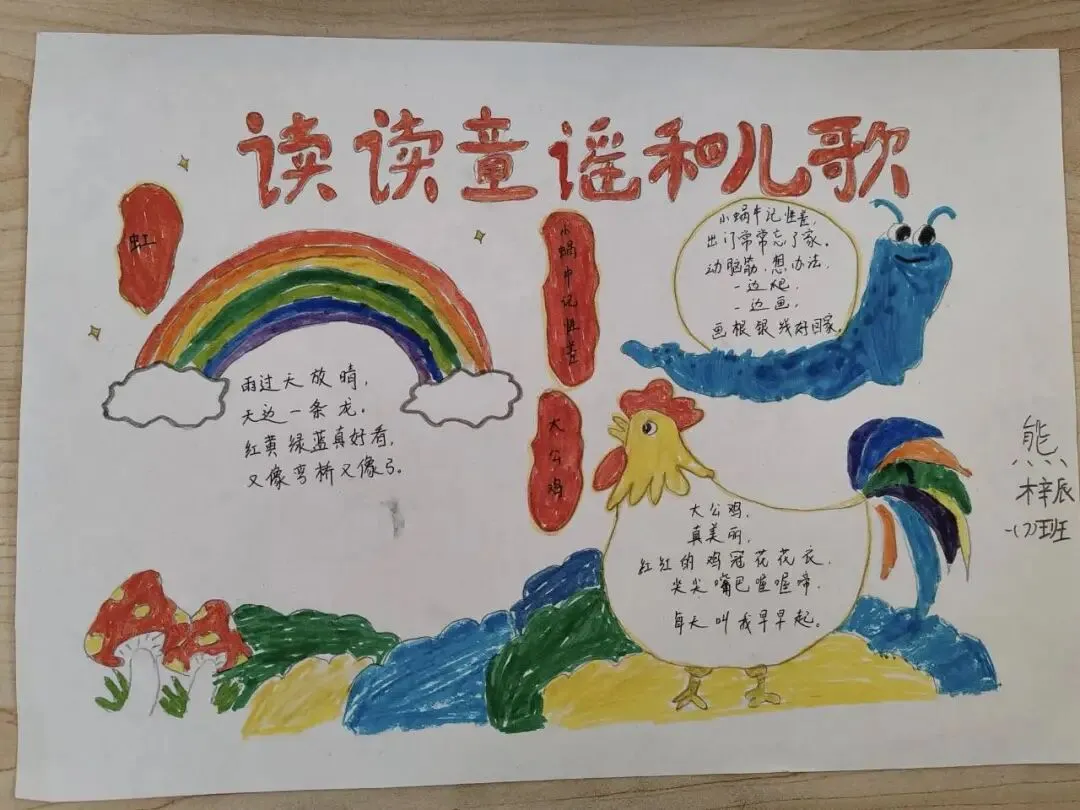 读读童谣和儿歌
虹
雨过天放晴，
天边一条龙。
红黄绿蓝真好看，
又像弯桥又像弓。
小蜗牛记性差
小蜗牛记性差，
出门常常忘了家。
动脑筋，想办法，
一边爬，
一边画，
画根银线好回家。
大公鸡
大公鸡，
真美丽，
红红的鸡冠花花衣，
尖尖嘴巴喔喔啼，
每天叫我早早起。
熊
梓辰
一(7)班